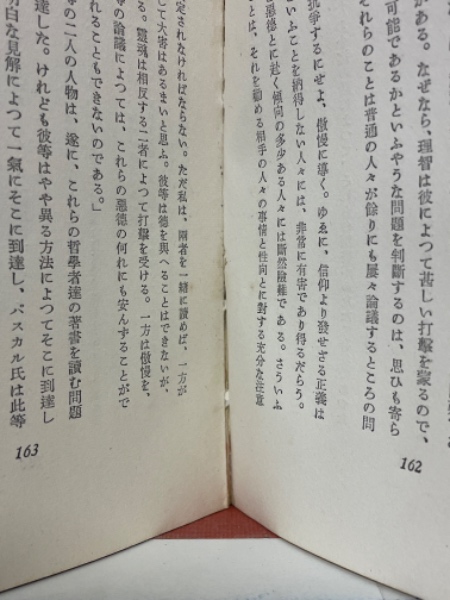 がある。なぜなら、理智は彼によつて甚しい打擊を蒙るので、
可能であるかといふやうな問題を判斷するのは、思ひも寄ら
それらのことは普通の人々が餘りにも屢々論議するところの問
抗爭するにせよ、傲慢に導く。ゆゑに、信仰より發せざる正義は
いふことを納得しない人々には、非常に有害であり得るだらう。
惡德とに赴く傾向の多少ある人々には斷然險難である。さういふ
とは、それを勸める相手の人々の事情と性向とに對する充分な注意
162
定されなければならない。ただ私は、兩者を一緒に讀めば、一方が
して大害はあるまいと思ふ。彼等は德を與へることはできないが、
る。靈魂は相反する二者によつて打擊を受ける。一方は傲慢を、
の論議によつては、これらの惡德の何れにも安んずることがで
れることもできないのである。」
の二人の人物は、遂に、これらの哲學者達の著書を讀む問題
達した。けれども彼等はやや異る方法によつてそこに到達し
明白な見解によつて一氣にそこに到達し、パスカル氏は此等
163